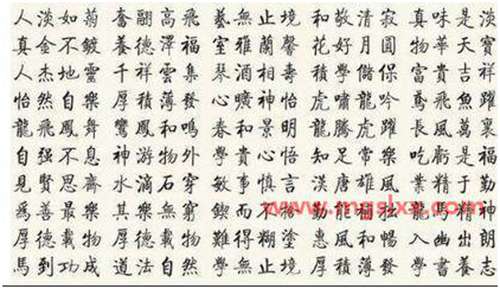 人淡如菊 奮翮高飛 藝無止境 和敬清寂 真味是淡
真金不鍍 養德澤福 室雅蘭馨 花好月圓 物華天寶
人杰地靈 千祥雲集 琴 相壽 學儲 富貴吉祥
怡然自樂 厚積薄發 曠神怡 虎嘯龍吟 鳶飛魚躍
龍飛鳳舞 鸞鳳和鳴 春和景明 龍騰虎躍 長風萬裏
自强不息 神游物外 和貴心 知足常樂 吃虧是福
見賢思齋 水滴石穿 敏事慎言 漢唐雄風 業精于勤
爲善最樂 其樂無窮 鍥而不 勤 龍馬精神
厚德載物 難得糊塗 惠風和暢 入幽出朗
馬到功成 道法自然 學無止境 厚積薄發 學書養志